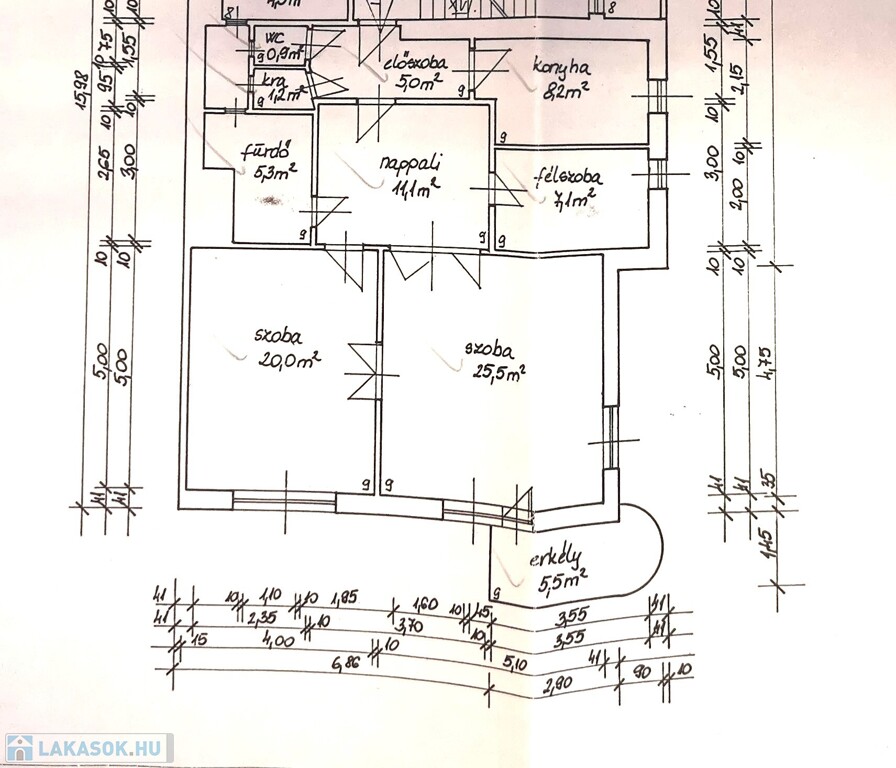 8
XV.
8
wc
0,9m²
9
kra
1,2m²
9
előszoba
5,0m²
9
konyha
8,2m²
9
fürdő
5,3m²
9
nappali
11,1m²
9
félszoba
7,1m²
9
szoba
20,0m²
9
szoba
25,5m²
9
erkély
5,5m²
9
15,98
10
75
10
95
10
2,65
10
5,00
41
10
1,55
10
3,00
10
5,00
41
10
1,55
10
3,00
10
5,00
41
41
2,15
10
2,00
10
5,00
41
4,75
35
1,45
41
10
1,10
10
1,85
1,60
10
45
3,55
41
41
2,35
10
3,70
10
3,55
41
15
4,00
10
5,10
41
6,86
2,90
90
10
LAKASOK.HU